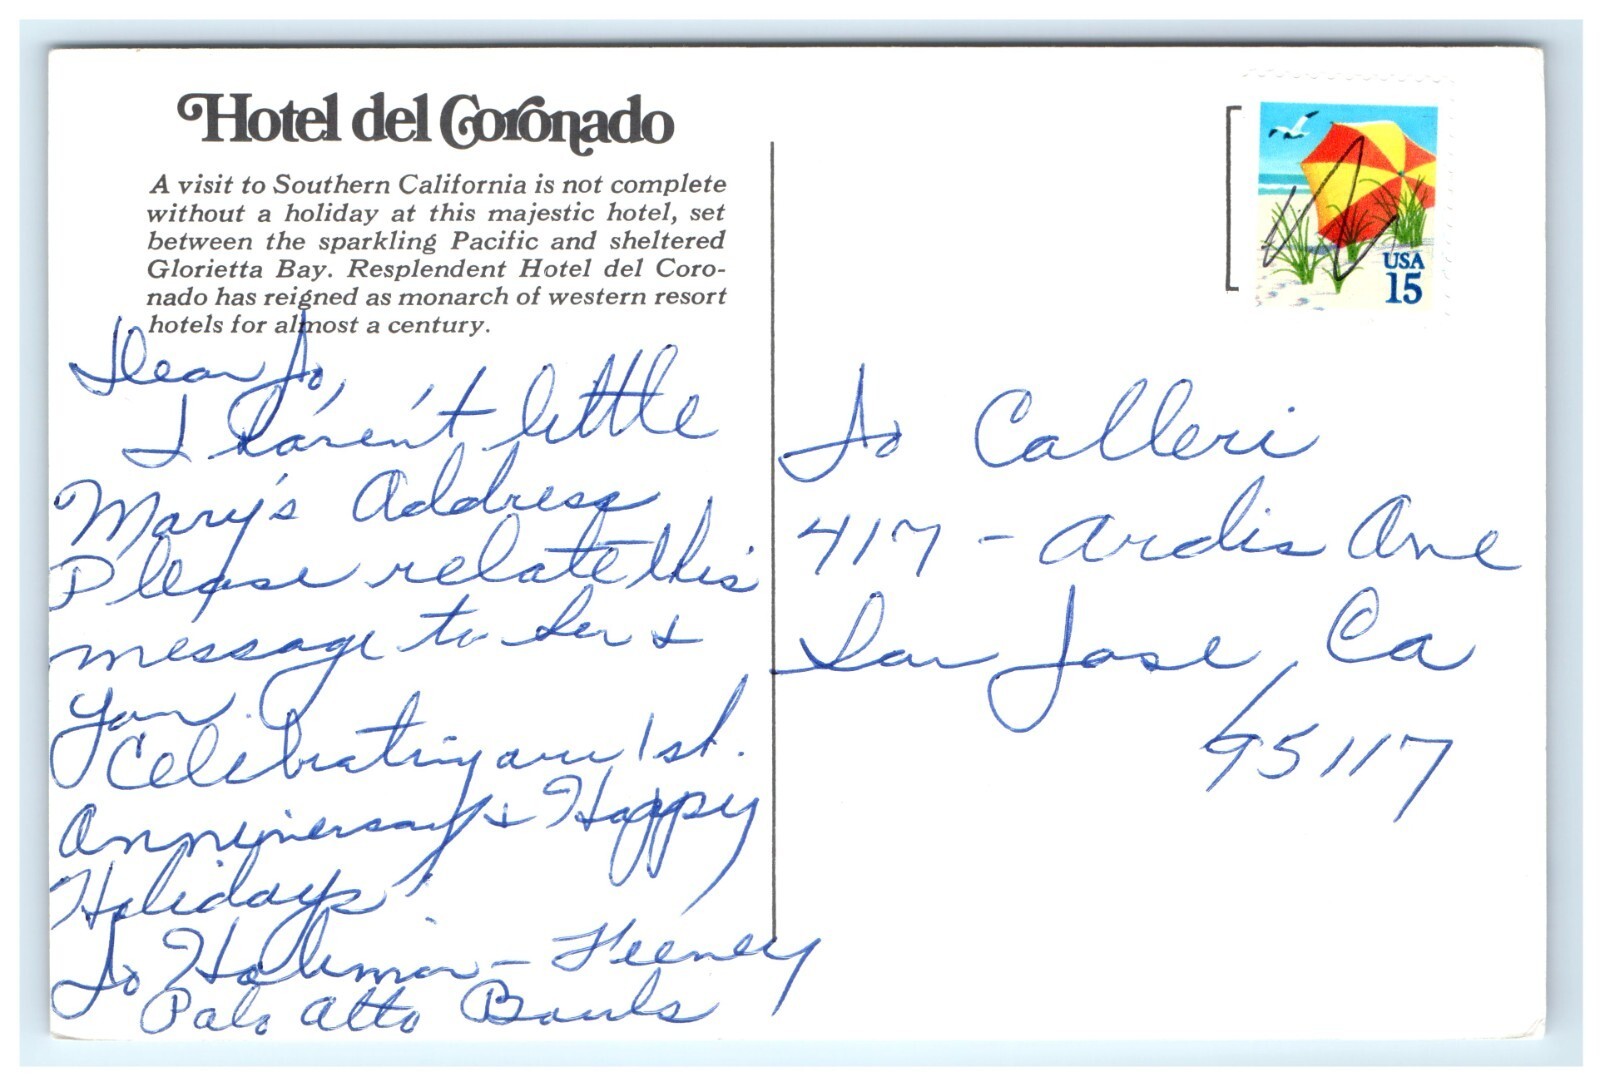 Hotel del Coronado
A visit to Southern California is not complete
without a holiday at this majestic hotel, set
between the sparkling Pacific and sheltered
Glorietta Bay. Resplendent Hotel del Coro-
nado has reigned as monarch of western resort
hotels for almost a century.
Dear Jo,
I haven't little
Mary's Address
Please relate this
message to her &
you.
Celebrating our 1st.
Anniversary & Happy
Holidays!
Jo - Feeney
Palo Alto
USA
15
Jo Calleri
417 - Ardis Ave
San Jose, Ca
95117